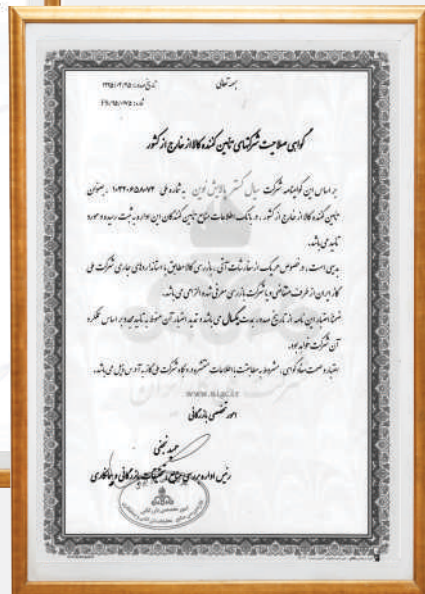 بسمه تعالی
تاریخ صدور: ۱۳۹۵/۰۴/۲۵
گواهی صلاحیت شرکتهای تامین کننده کالا از خارج از کشور
بر اساس این گواهینامه شرکت سیال گستر پالایش نوین به شماره ملی ۱۰۳۲۰۶۵۸۰۷۴ ، بعنوان
تامین کننده کالا از خارج از کشور ، در بانک اطلاعات منابع تامین کنندگان این اداره به ثبت رسیده و مورد
تایید می باشد.
بدیهی است ، در خصوص هر یک از سفارشات آتی ، بازرسی کالا مطابق با استانداردهای جاری شرکت ملی
گاز ایران از طرف متقاضی و یا شرکت بازرسی معرفی شده الزامی می باشد.
ضمنا اعتبار این نامه از تاریخ صدور بمدت یکسال می باشد و تمدید اعتبار آن منوط به تایید مجدد بر اساس عملکرد
آن شرکت خواهد بود.
اعتبار و صحت مفاد گواهی ، مشروط به مطابقت با اطلاعات منتشره در وبگاه شرکت ملی گاز به آدرس ذیل می باشد.
www.nigc.ir
امور تخصصی بازرگانی
نجفی
رئیس اداره بررسی منابع ، تحقیقات بازرگانی و پیمانکاری
شرکت ملی گاز ایران